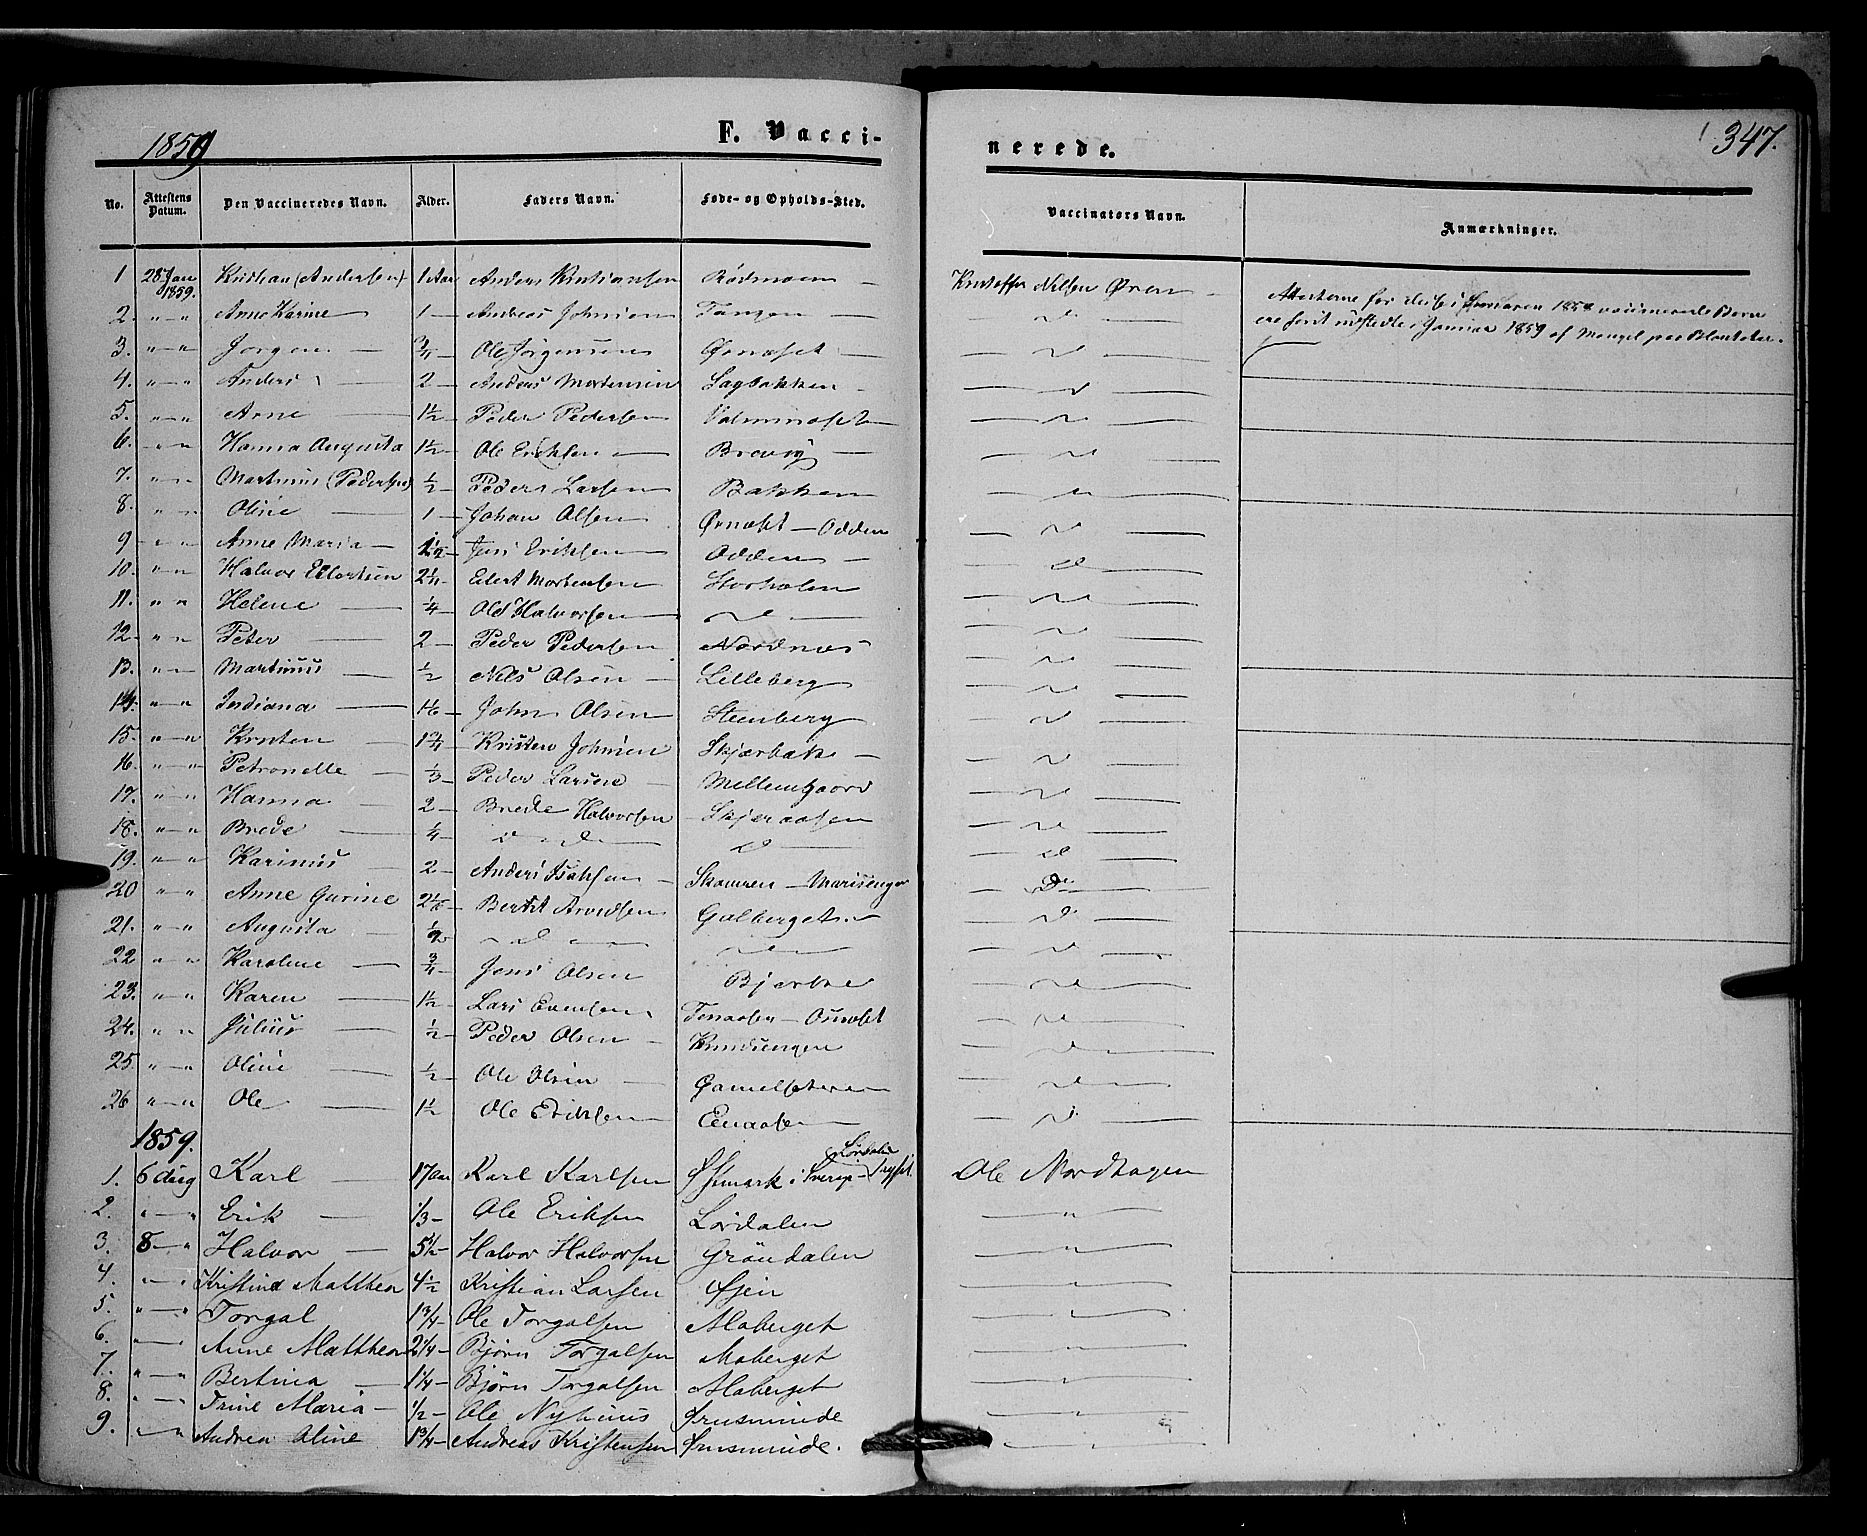 1859
F. Vacci-
nerede.
347.
No. Attestens Datum. Den Vaccineredes Navn. Alder. Faders Navn. Føde- og Opholds-Sted. Vaccinators Navn. Anmærkninger.
1 28 Jan 1859. Kristian (Andersen) 1 Aar Anders Kristiansen Rødmoen Kristoffer Nilsen Øren
Attesterne for de i 1858 vaccinerede Børn
ere først udstedte i Januar 1859 af Mangel paa Blanketter.
2. " " Anne Karine 1 Andreas Johnsen Tangen d
3. " " Jørgen 3/4 Ole Jørgensen Ørnæset d
4. " " Anders 2 Anders Mortensen Sagbakken d
5. " " Arne 1½ Peder Pedersen d
6. " " Hanna Augusta 1½ Ole Eriksen Brovig d
7. " " Martinus (Pedersen) ½ Peder Larsen Bakken d
8. " " Oline 1 Johan Olsen Ørnæset Odden d
9 " " Anne Maria 1½ Jens Eriksen Odden d
10. " " Halvor Eilertsen 2¼ Eilert Mortensen Storholen d
11. " " Helene ¼ Ole Halvorsen d d
12. " " Peter 2 Peder Pedersen Nordnæs d
13. " " Martinus ½ Nils Olsen Lilleberg d
14. " " Indiana 1/6 John Olsen Steenberg d
15. " " Kristen 1¾ Kristen Johnsen Skjærbæk d
16. " " Petronelle ⅓ Peder Larsen Mellemgaard d
17. " " Hanna 2 Brede Halvorsen Skjæraasen d
18. " " Brede ¼ d d d d
19. " " Karinus 2 Anders Isaksen Skamren Marisenger d
20 " " Anne Gurine Berthe Arvesen Galberget d
21. " " Augusta ½ d d d
22 " " Karoline ¾ Jens Olsen Bjerke d
23. " " Karen 1½ Lars Evensen Osnæset d
24. " " Julius ½ Peder Olsen d
25 " " Oline ½ Ole Olsen Gamelsæteren d
26 " " Ole 1½ Ole Eriksen d
1859.
1. 6 Aug Karl 17 Aar Karl Karlsen Østmark i Sverig Lørdalen Trysil Ole Nordhagen
2. " " Erik 1/3 Ole Eriksen Lørdalen "
3. 8 " Halvor 5½ Halvor Halvorsen Gröndalen "
4. " " Kristine Matthea 4½ Kristian Larsen "
5. " " Torgal 1¾ Ole Torgalsen Moberget "
6. " " Anne Matthea 2¼ Bjørn Torgalsen Moberget "
7. " " Bertina 1¼ Bjørn Torgalsen Moberget "
8. " " Trine Maria ½ Ole Nyhuus Ørusminde "
9. " " Andrea Oline 1¾ Andreas Kristensen Ørusminde. "